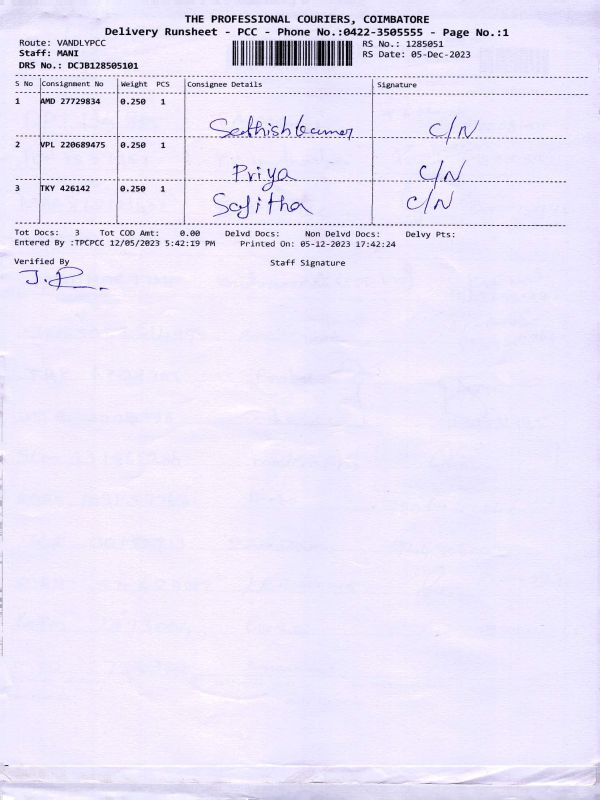 THE PROFESSIONAL COURIERS, COIMBATORE
Delivery Runsheet - PCC - Phone No.:0422-3505555 - Page No.:1
Route: VANDLYPCC RS No.: 1285051
Staff: MANI RS Date: 05-Dec-2023
DRS No.: DCJB128505101
S No Consignment No Weight PCS Consignee Details Signature
1 AMD 27729834 0.250 1
Sathishkumar C/N
2 VPL 220689475 0.250 1
Priya C/N
3 TKY 426142 0.250 1
Sajitha C/N
Tot Docs: 3 Tot COD Amt: 0.00 Delvd Docs: Non Delvd Docs: Delvy Pts:
Entered By :TPCPCC 12/05/2023 5:42:19 PM Printed On: 05-12-2023 17:42:24
Verified By Staff Signature